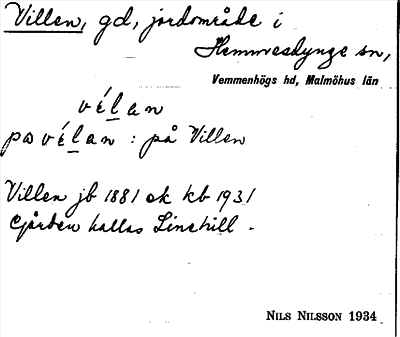 Villen, gd, jordområde i
Hemmesdynge sn,
Vemmenhögs hd, Malmöhus län
vélan
pɒ vélan : på Villen
Villen jb 1881 ek kb 1931
Gården kallas Linehill.
NILS NILSSON 1934